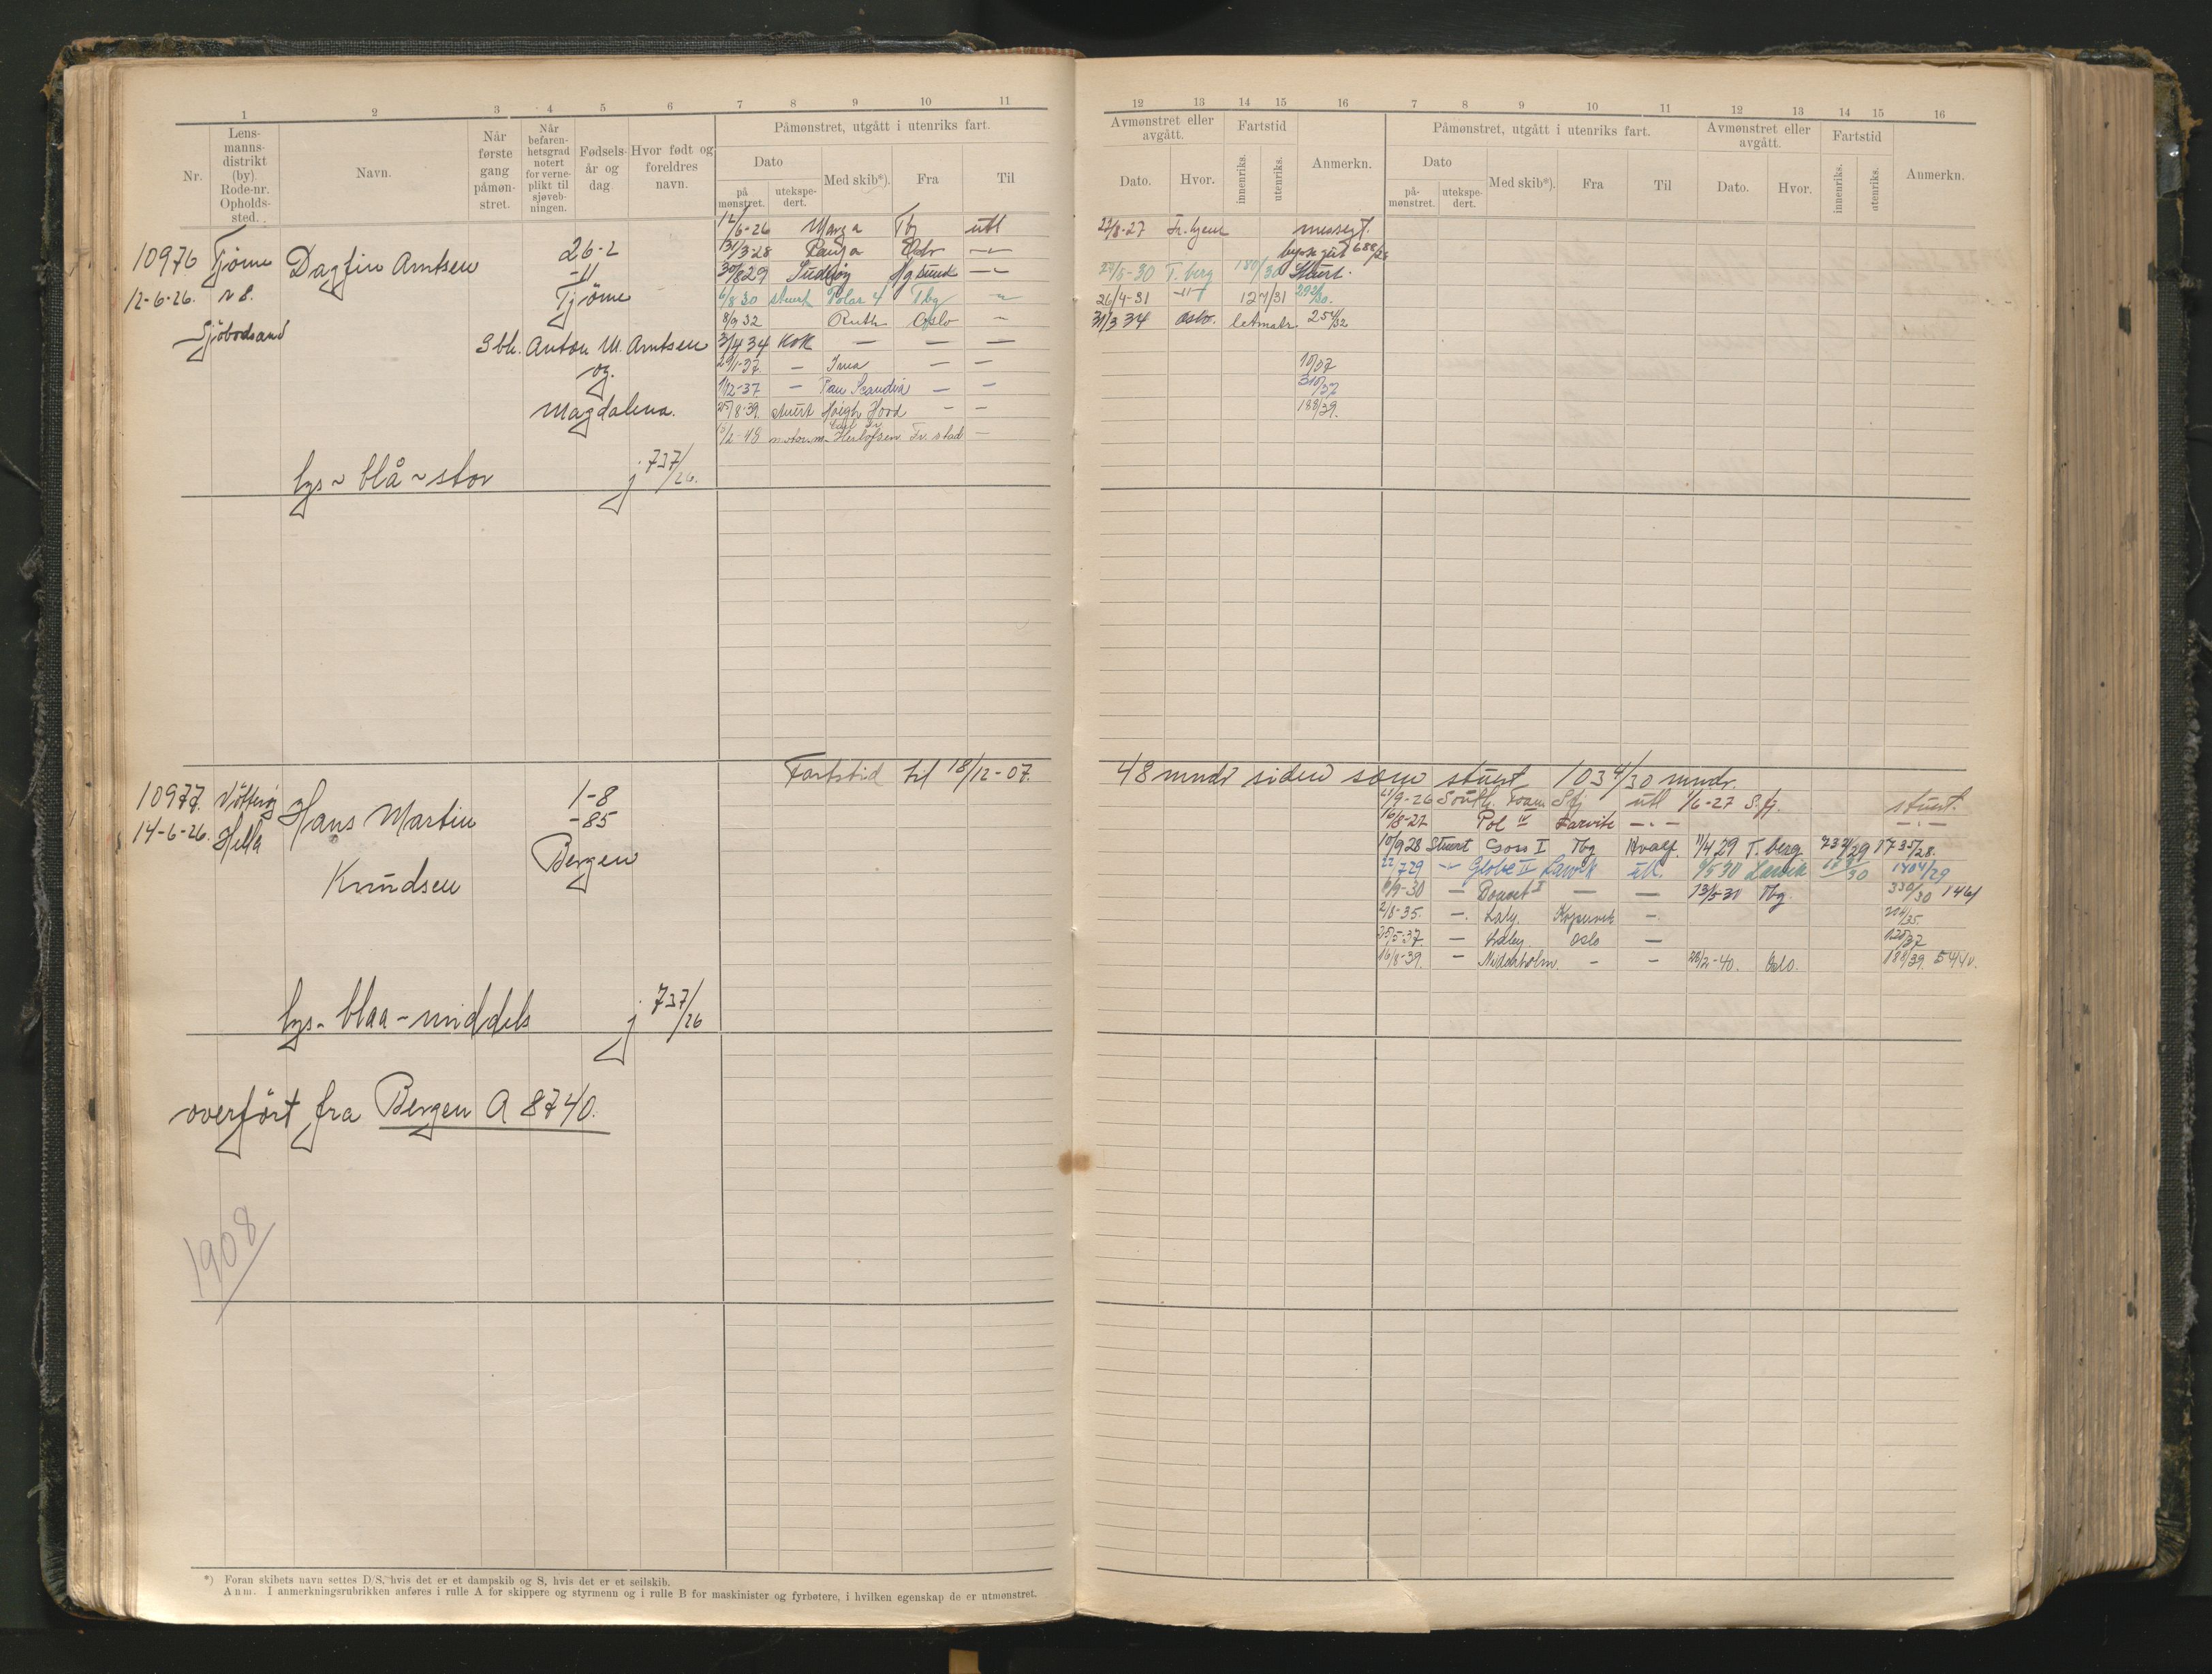 1 2 3 4 5 6 7 8 9 10 11
Nr.
Lensmannsdistrikt (by). Rode-nr. Opholdssted.
Navn.
Når første gang påmønstret.
Når befarenhetsgrad notert for verneplikt til sjøvebningen.
Fødselsår og dag.
Hvor født og foreldres navn.
Påmønstret, utgått i utenriks fart.
Dato
på mønstret.
utekspedert.
Med skib*).
Fra
Til
10976 Tjøme Dagfin Arntsen 26-2
12-6-26. -11
Tjøme
Sjøbodsand
Anton M. Arntsen
og
Magdalena.
12/6-26 Marga Tbg utl
31/3 28
30/8 29 Hgsund
6/8 30 stuert Polar 4 Tbg
8/9 32 Ruth Oslo —
3/4 34 Kok — — —
29/1-37. — Irma — —
1/12-37 — Pan Scandia — —
25/8-39. stuert Høegh Hood — —
/2-48 motorm. Herlofsen Fr.stad —
lys ~ blå ~ stor j 737/26.
Fartstid til 18/12-07.
10977. Nøtterøy Hans Martin 1-8
14-6-26. Hella -85
Knudsen Bergen
lys - blaa - middels j 737/26
overført fra Bergen A 8740.
1908
*) Foran skibets navn settes D/S, hvis det er et dampskib og S, hvis det er et seilskib.
Anm. I anmerkningsrubrikken anføres i rulle A for skippere og styrmenn og i rulle B for maskinister og fyrbøtere, i hvilken egenskap de er utmønstret.
12 13 14 15 16 7 8 9 10 11 12 13 14 15 16
Avmønstret eller avgått.
Dato.
Hvor.
Fartstid
innenriks.
utenriks.
Anmerkn.
Påmønstret, utgått i utenriks fart.
Dato
påmønstret.
utekspedert.
Med skib*).
Fra
Til
Avmønstret eller avgått.
Dato.
Hvor.
Fartstid
innenriks.
utenriks.
Anmerkn.
22/8-27 messegt.
688/28
27/5-30 T.berg 180/30 Stuert.
26/4-31 —"— 127/31
31/3 34 Oslo. 254/32
10/37
310/37
188/39.
48 mndr siden som stuert 103 4/30 mndr.
/9-26 South. Foam Sfj utl 1/6-27 S.fj. stuert.
16/8-27 Pol IV Larvik —.— —.—
10/9 28 Stuert Goss I Tbg Hvalf. 11/4 29 T.berg 1735/28.
22/7 29 Globe II Larvik utl. 9/5 30 Larvik 1404/29
6/9-30 — Bouvet I — — 13/5 31 Tbg. 330/30
2/8-35. —. Laly. Kopervik —.
25/5-37. — Laly. Oslo — 120/37
16/8-39. — Nidarholm. — — 26/2-40. Oslo. 188/39.